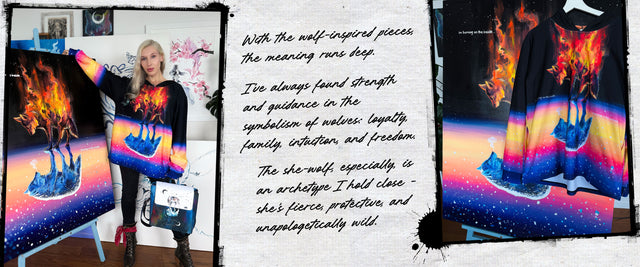 With the wolf-inspired pieces,
the meaning runs deep.
I've always found strength
and guidance in the
symbolism of wolves: loyalty,
family, intuition, and freedom.
The she-wolf, especially, is
an archetype I hold close -
she's fierce, protective, and
unapologetically wild.
im burning on the inside